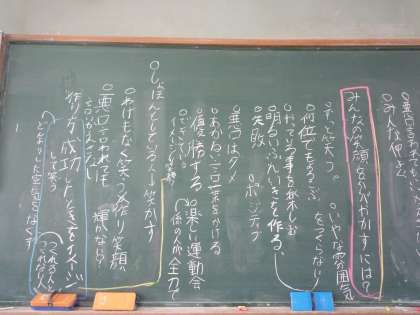 ○悪口をいわない
○みんな仲よく
みんなの笑顔をかがやかすには？
○ずっと笑う。
○いやな雰囲気をつくらない
○何位でもよろこぶ
○やっている事を楽しむ
○明るいふんいきを作る。
○失敗 ポジティブ
○悪口はダメ
○あかるい言葉をかける
○優勝する
○楽しい運動会
○できている
イメージ
係の人が全力で
○しょぼんとしている人を笑かす
○わけもなく笑う
作り笑顔
○悪口言われても
言いかえさない
輝かない？
作り方 成功したときをイメージ
して笑う
どよーんとした空気をなくす